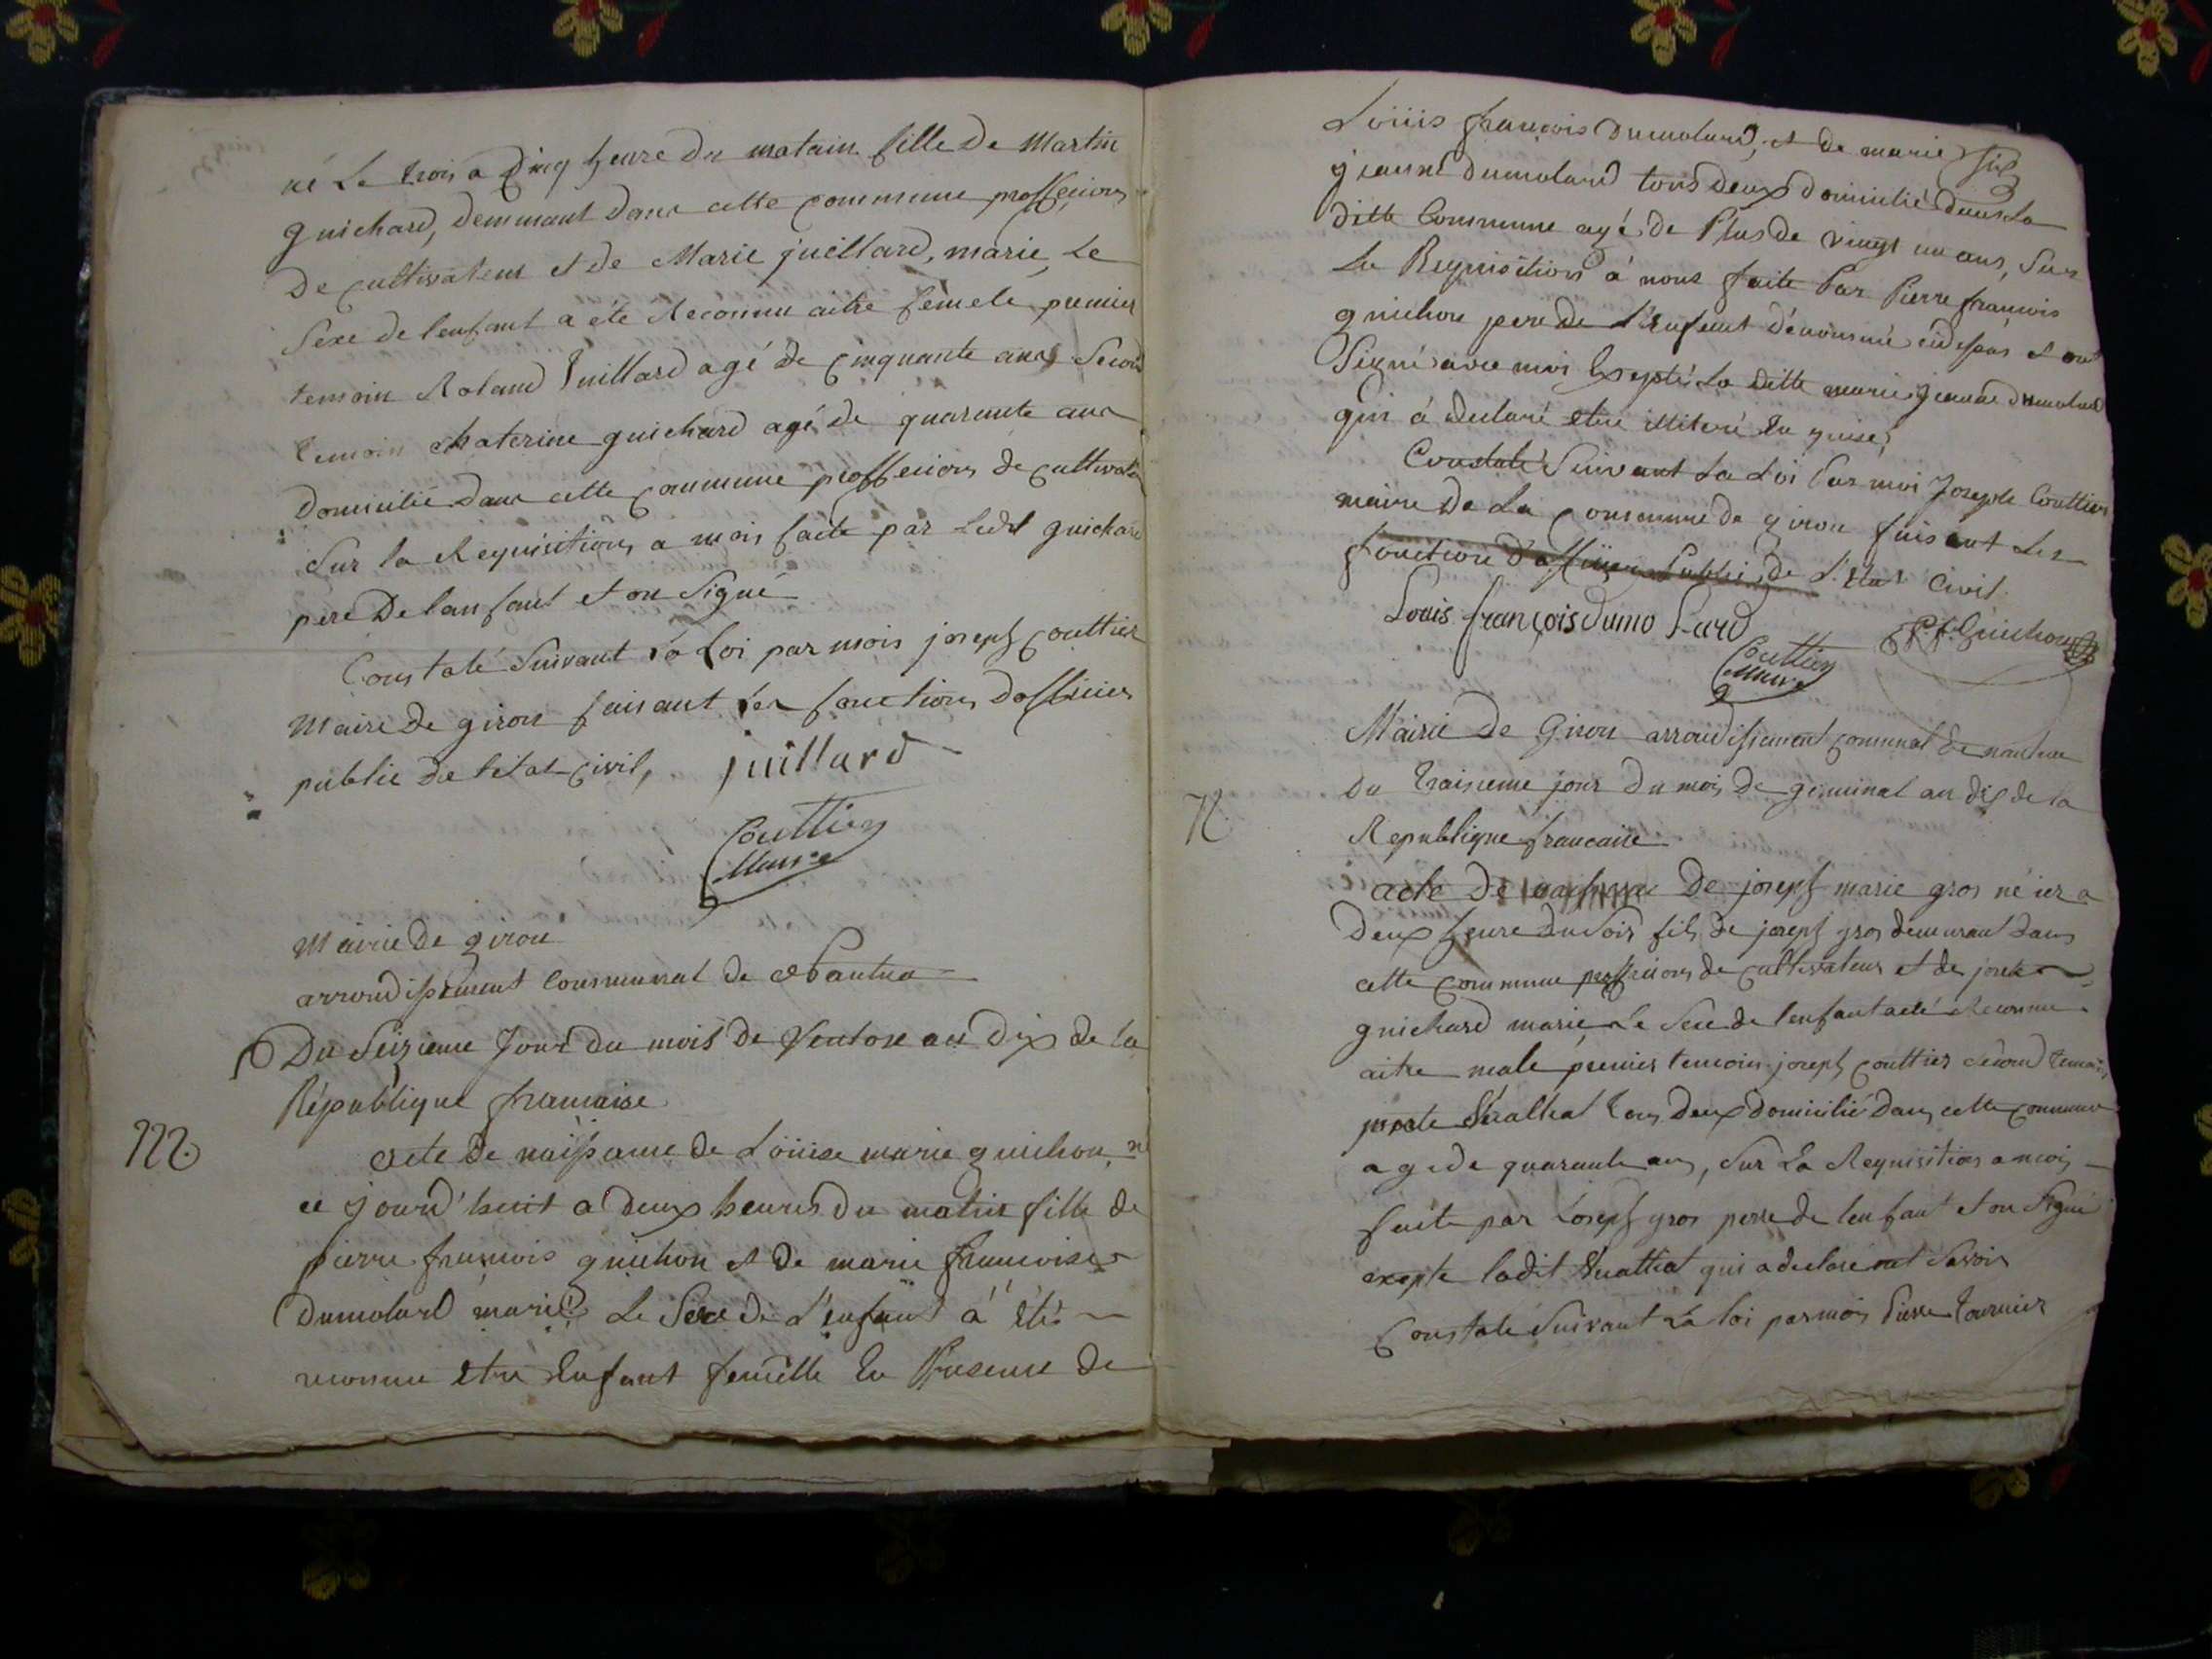 né Le trois a Cinq heure du matain fille De Martin
guichard, demmant dans cette commune proffecions
De cultivateur et de Marie juillard, marié, Le
Sexe de lenfant a été Reconnu aitre femele premier
temoin Roland Juillard agé de cinquante ans Secon
temoin chaterine guichard agé de quarante ans
domicilié dans cette commune proffecions de cultivateur
Sur la Requisitions a mois faite par Ledit guichard
pere De lanfant et on Signé
Constaté Suivant la Loi par mois joseph couttier
Maire de giron faisant les fonctions dofficier
public de letat civil, juillard
Couttier
Maire
Mairie De giron
arrondissement Communal de Nantua
Du Seizieme Jour du mois de Ventose an Dix de la
République francaise
M.
acte de naissance de Loüise marie guichon, né
ce jourd'huit a deux heures du matin fille de
pierre francois guichon et de marie francoise
Dumolard marié Le Sexe de L'enfant á été
reconnu etre Enfant femelle En Presence de
Loüis francois Dumolard, et de marie
jeanne dumolard tous deux domicilié dans La
ditte Commune agé de Plus de vingt un ans, Sur
La Requisition á nous faite Par Pierre francois
guichon pere de L'enfant dénommé cidessus et ont
Signé avec moi Exepté La ditte marie jeanne dumolard
qui á declaré etre illiteré
Constaté Suivant La Loi Par moi Joseph Couttier
maire de La Commune de giron faisant Les
fonction d'officier Public de L'Etat Civil.
Louis françois dumo Lard
P. f. Guichon
Couttier
Maire
Mairie De Giron arrondissement communal de nantua
Du traisieme jour du mois de germinal an dix de la
N.
Republique francaise
acte de naissance De joseph marie gros né ier a
Deux heure du Soir fils de joseph gros demeurant dans
cette commune proffecions de cultivateur et de
guichard marié, Le Sexe de lenfant a eté Reconnu
aitre male premier temoin joseph couttier Second temoin
tous deux domicilié dans cette commune
age de quarante ans, Sur La Requisition a mois
faite par Joseph gros perre de lenfant et on Signé
exepte ladit qui a declaré Savoir
Constaté Suivant La loi par mois Pierre tournier